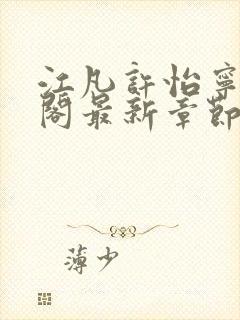 江凡許怡寧
閣最新章節
薄少